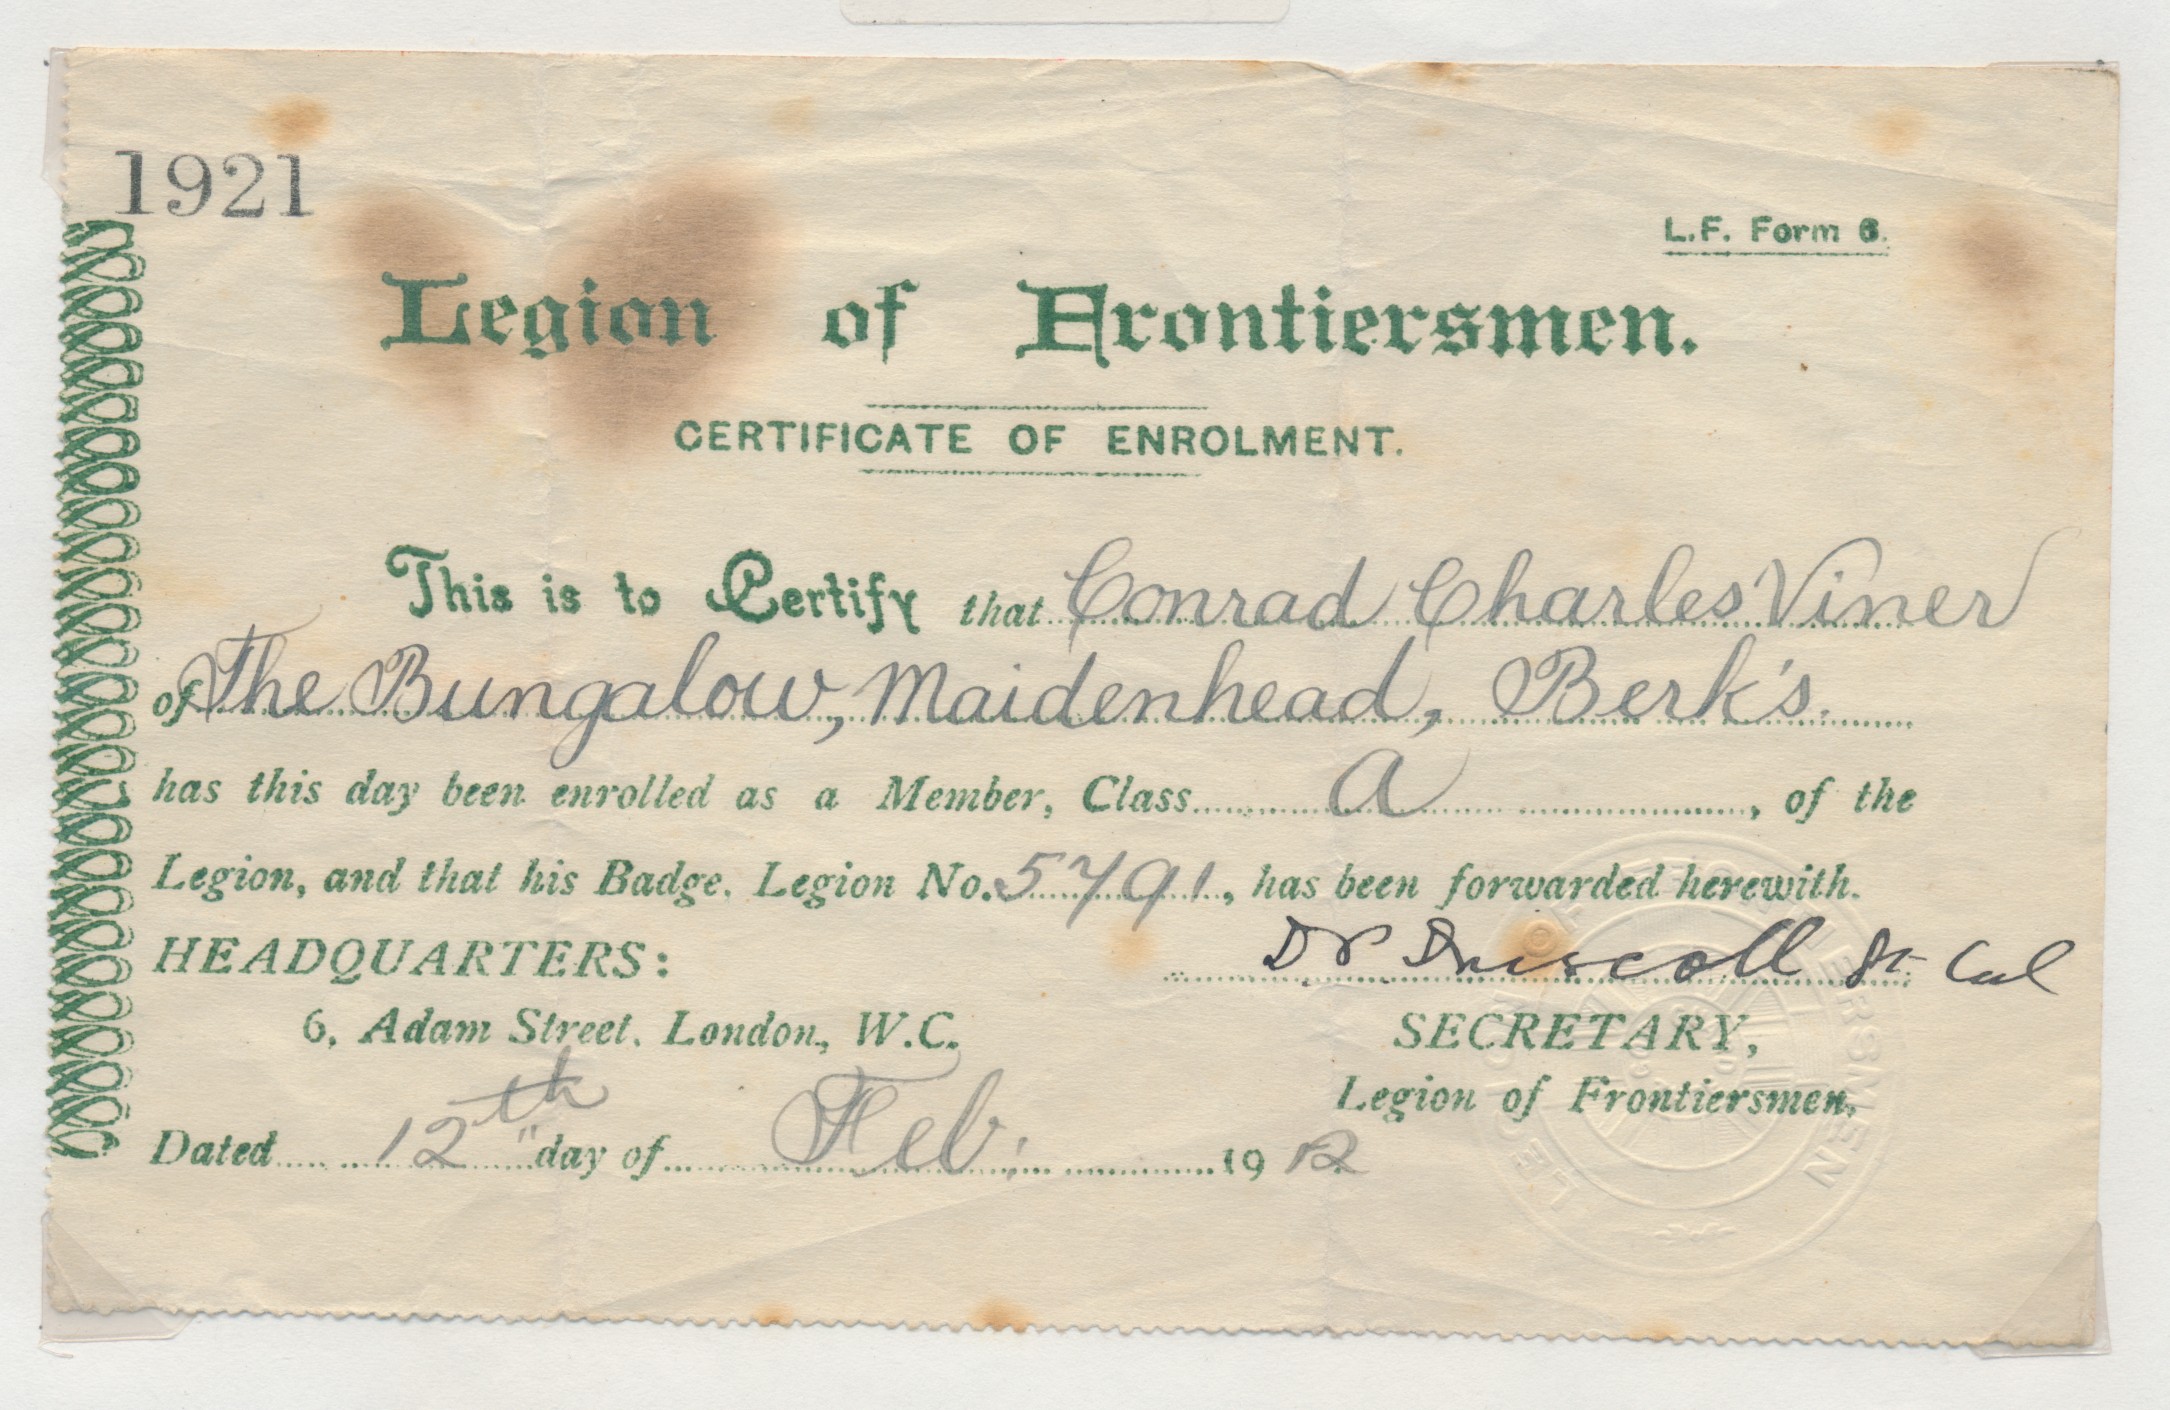 1921
L.F. Form 6.
Legion of Frontiersmen.
CERTIFICATE OF ENROLMENT.
This is to Certify that Conrad Charles Viner
of The Bungalow, Maidenhead, Berk's.
has this day been enrolled as a Member, Class A, of the
Legion, and that his Badge, Legion No. 5791, has been forwarded herewith.
HEADQUARTERS:
D P Driscoll Lt Col
6, Adam Street, London, W.C.
SECRETARY,
Legion of Frontiersmen.
Dated 12th day of Feb. 1912
LEGION OF FRONTIERSMEN